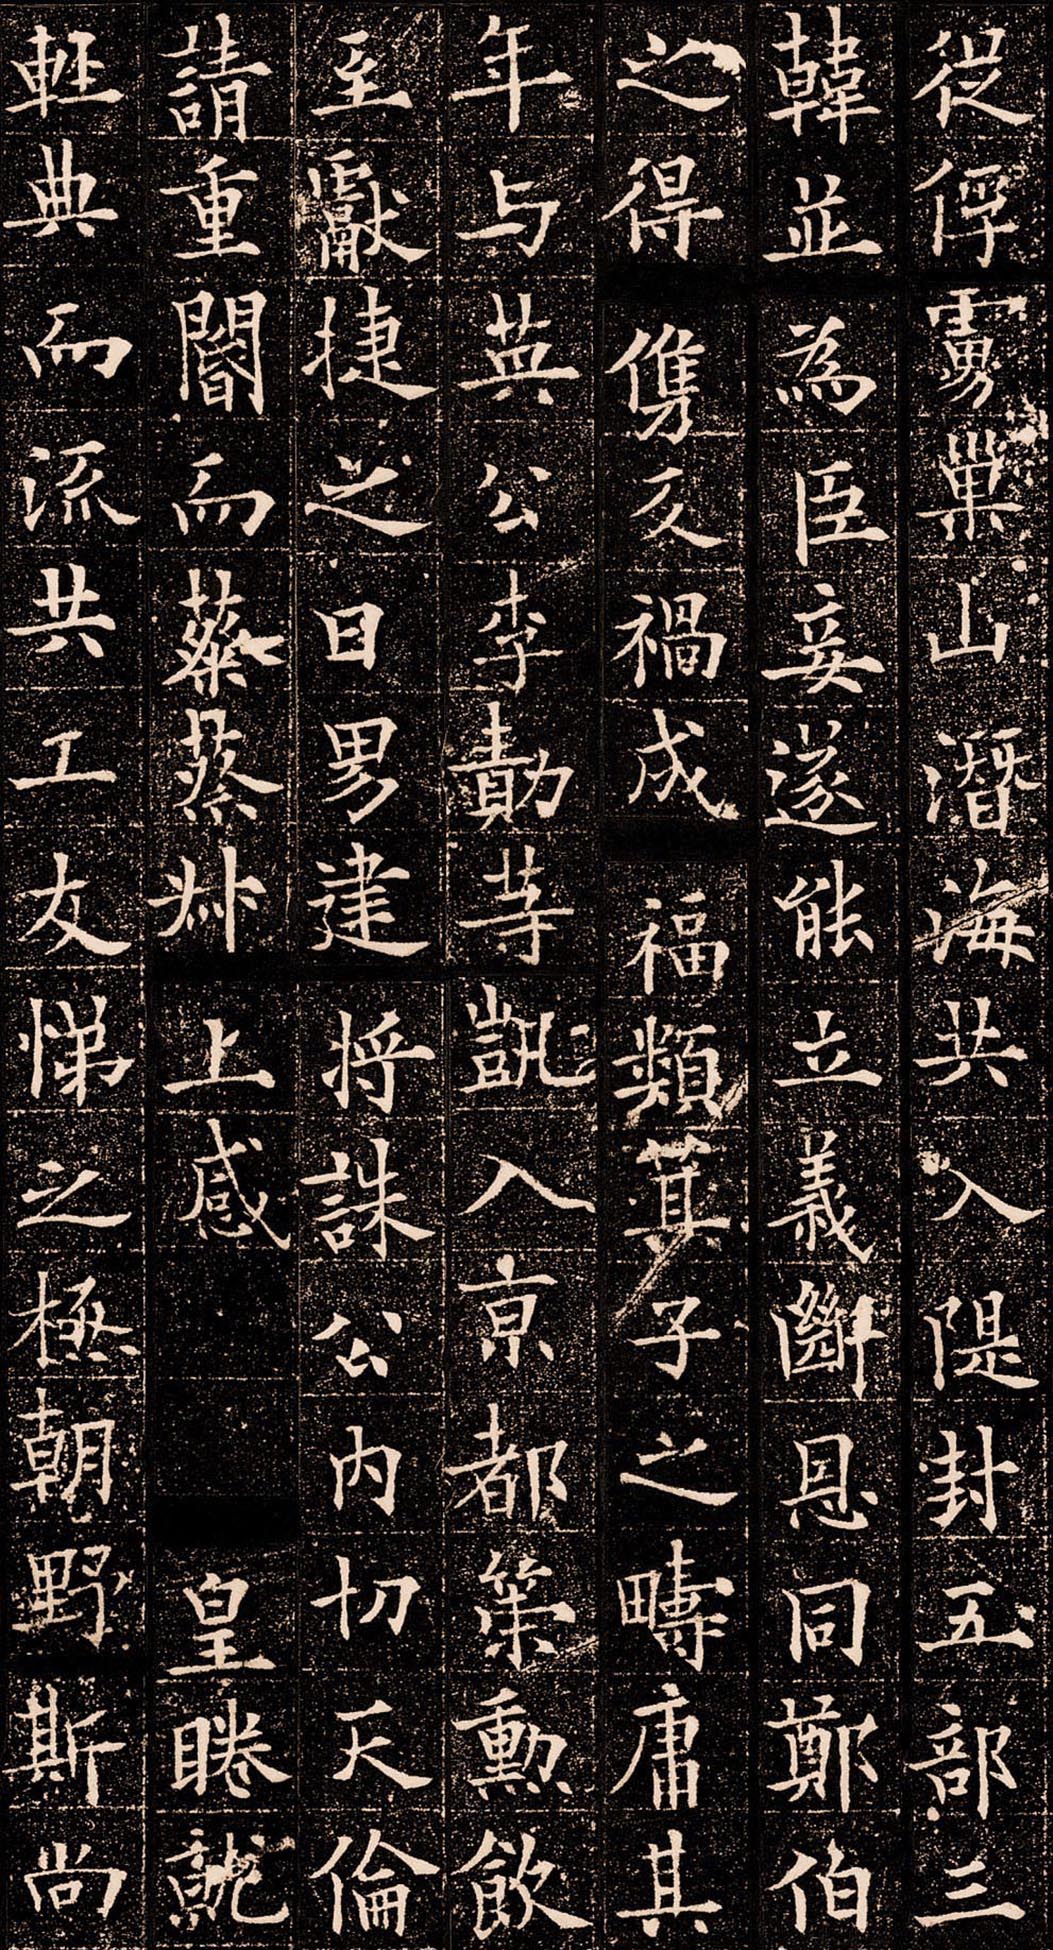 從俘虜巢山潛海共入隄封五部三
韓並為臣妾遂能立義斷恩同鄭伯
之得儁反禍成福類箕子之疇庸其
年与英公李勣等凱入京都策勳飲
至獻捷之日男建將誅公內切天倫
請重閽而蔡蔡叔上感皇睠就
輕典而流共工友悌之極朝野斯尚